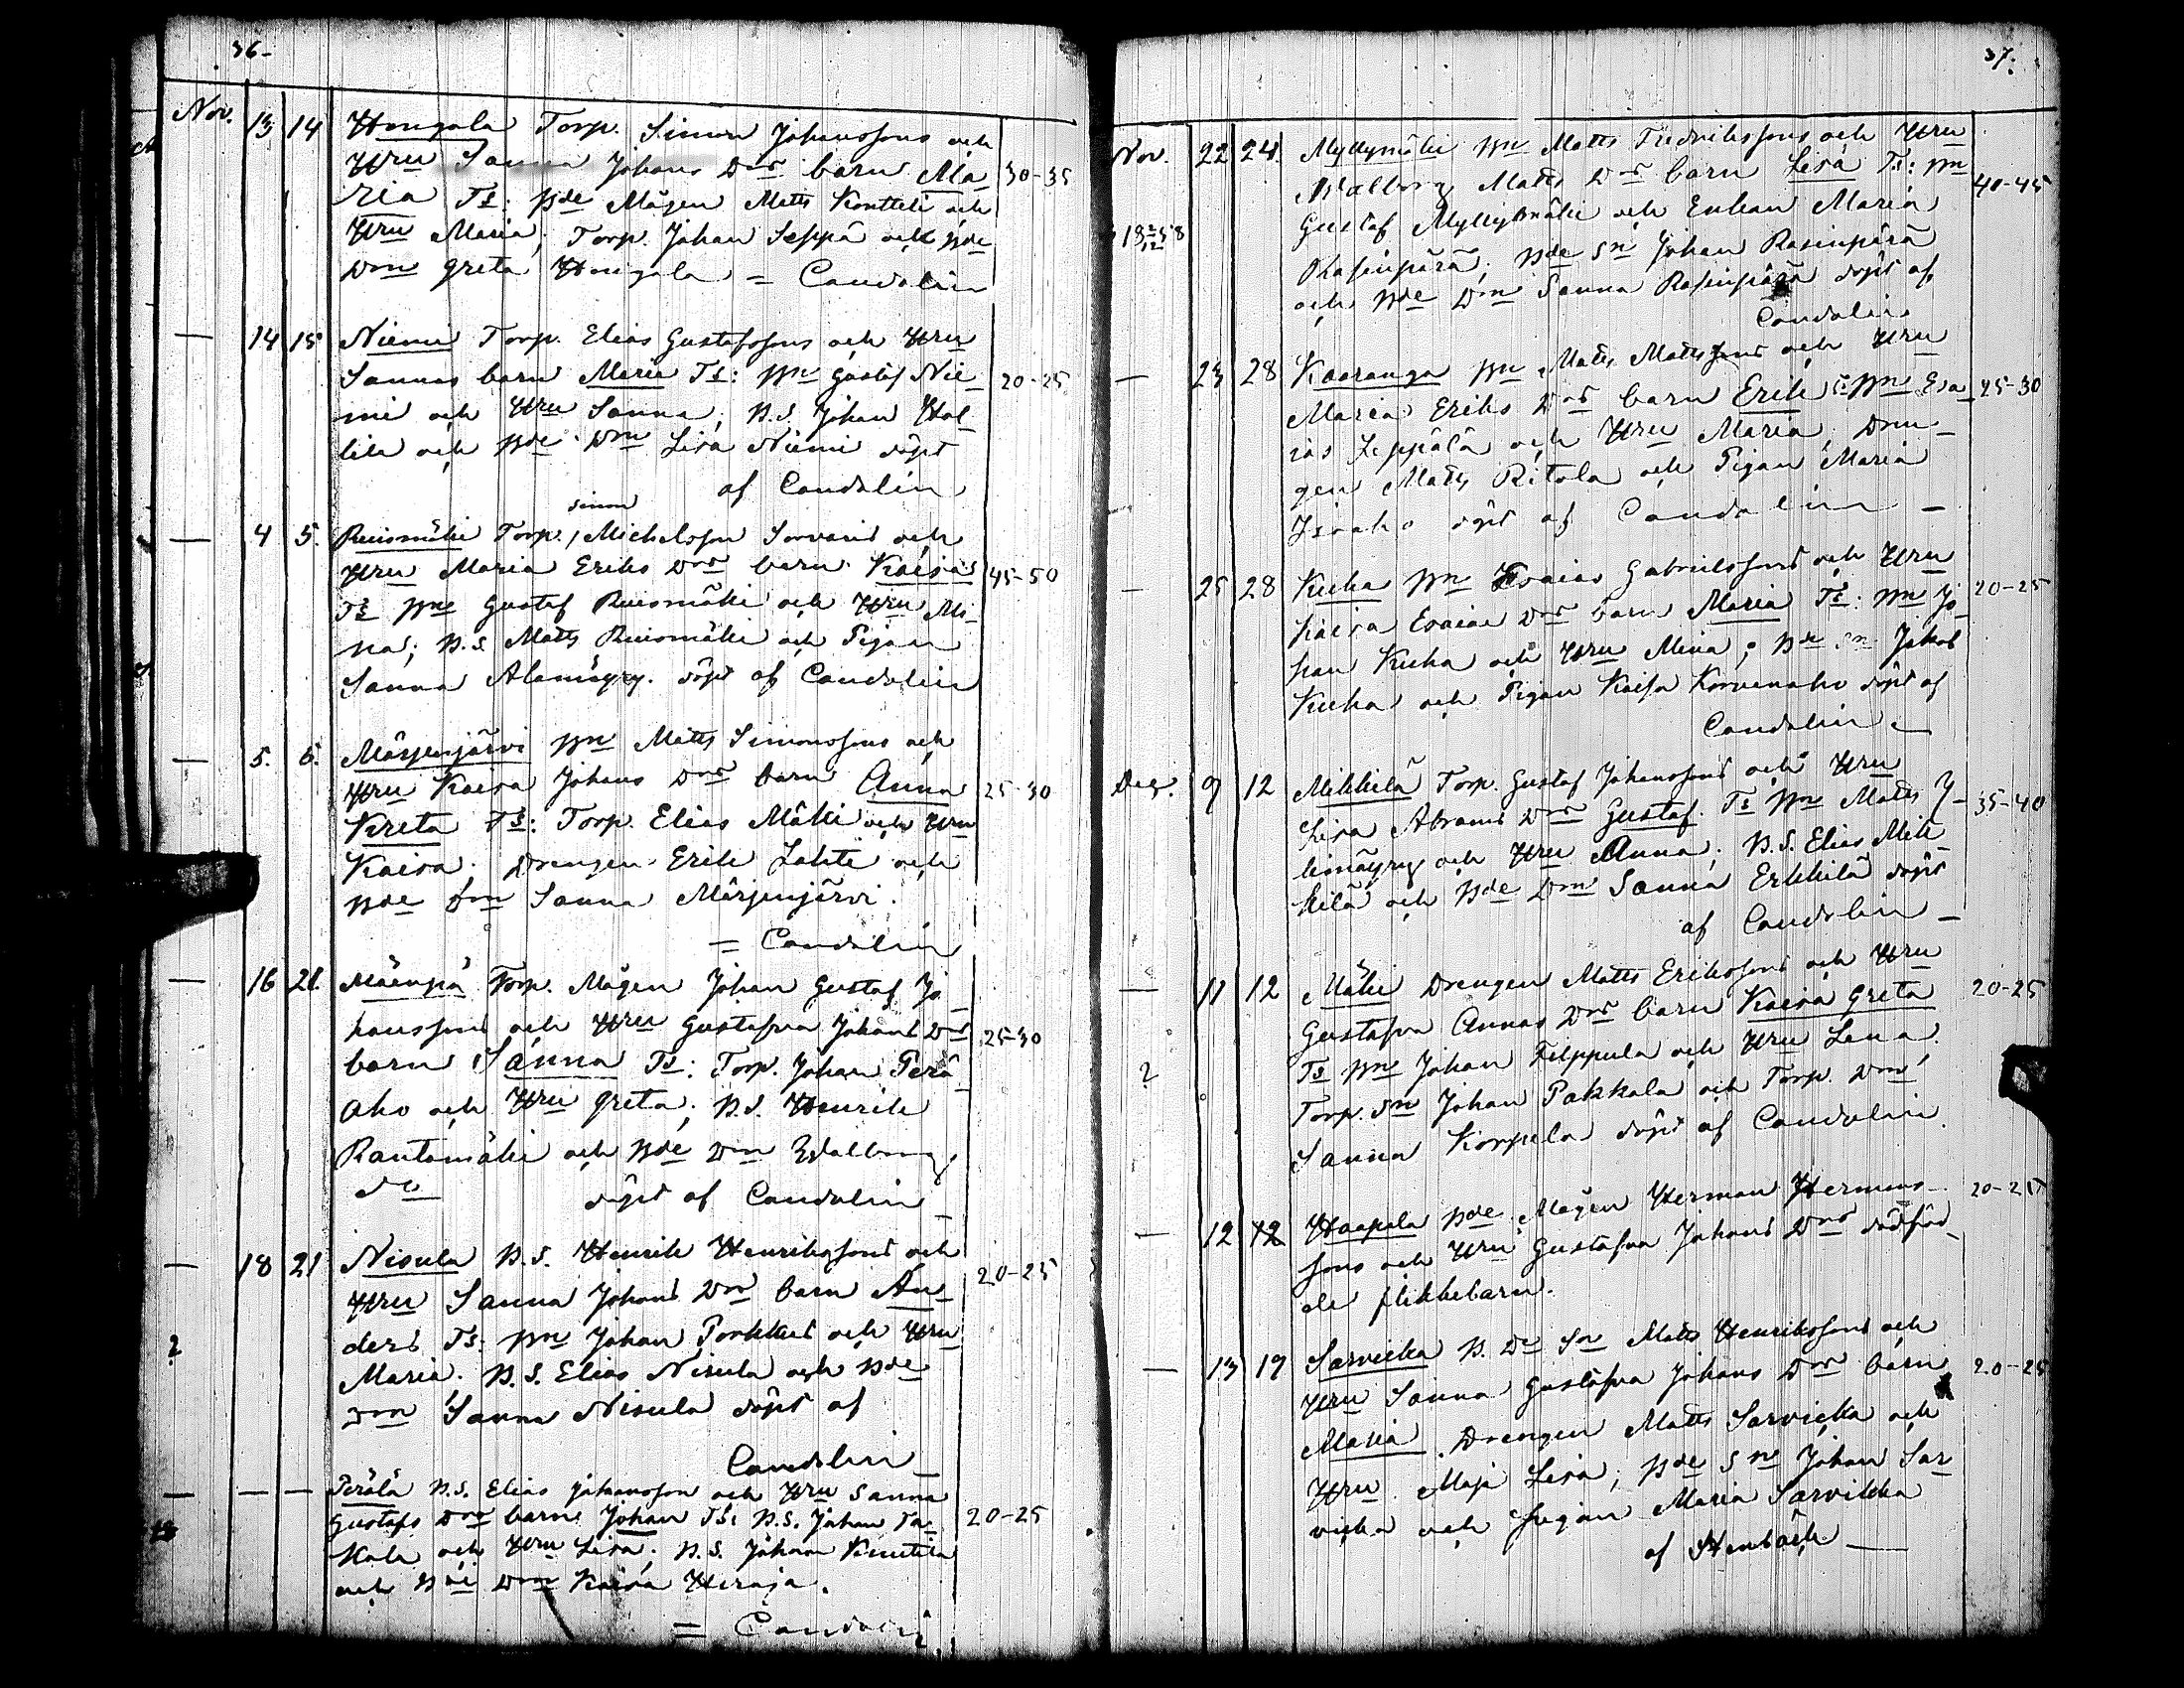 36-
Nov. 13 14 Hongola Torp. Simon Johanssons och
Hru Sanna Johans Drs barn Ma- 30-35
ria Ts: Bde Mågen Matts Kontteli och
Hru Maria; Torp. Johan Seppä och Bde
Drn Greta Hongola = Candolin
— 14 15 Niemi Torp. Elias Gustafssons och Hru
Sannas barn Maria Ts: Bn Gustaf Nie- 20-25
mi och Hru Sanna; B.S. Johan Hol-
lik och Bde Drn Lisa Niemi döpt
af Candolin
simon
— 4 5. Ruismäki Torp. / Michelsson Sorvaris och
Hru Maria Eriks Drs barn Kaisa 45-50
Ts Bn Gustaf Ruismäki och Hru Mi-
na; B.S. Matts Ruismäki och Pigan
Sanna Alamäyry. döpt af Candolin
— 5. 6. Märjenjärvi Bn Matts Simonssons och
Hru Kaisa Johans Drs barn Anna 25-30
Kreta Ts: Torp. Elias Mäki och Hru
Kaisa; Drengen Erik Lahti och
Bde Drn Sanna Märjenjärvi.
= Candolin
— 16 21. Mäenpä Torp. Mågen Johan Gustaf Jo-
hanssons och Hru Gustafva Johans Drs 25-30
barn Sanna Ts: Torp. Johan Perä-
aho och Hru Greta; B.S. Henrik
Rantamäki och Bde Drn Walborg
do döpt af Candolin
— 18 21 Nisula B.S. Henrik Henrikssons och
Hru Sanna Johans Drs barn An- 20-25
ders Ts: Bn Johan Porkkus och Hru
? Maria. B.S. Elias Nisula och Bde
Drn Sanna Nisula döpt af
Candolin
— — — Perälä B.S. Elias Johansson och Hru Sanna
Gustafs Drs barn Johan Ts: B.S. Johan Pa- 20-25
kkala och Hru Lisa; B.S. Johan Knutila
och Bde Drn Kaisa Heroja.
= Candolin
37.
Nov. 22 24. Myllymäki Bn Matts Fredrikssons och Hru
Walborg Matts Drs barn Lisa Ts: Bn 40-45
Gustaf Myllymäki och Enkan Maria
Rasinpärä; Bde Sn Johan Rasinpärä
och Bde Drn Sanna Rasinpärä döpt af
Candolin
— 23 28 Kaaranga Bn Matts Mattssons och Hru
Maria Eriks Drs barn Erik Ts Bn Esa- 25-30
ias Seppälä och Hru Maria; Dren-
gen Matts Ritola och Pigan Maria
Isoaho döpt af Candolin —
— 25 28 Kuha Bn Esaias Gabrielssons och Hru
Kaisa Esaias Drs barn Maria Ts: Bn Jo- 20-25
han Kuha och Hru Mina; Bde Sn Jakob
Kuha och Pigan Kaisa Korvenaho döpt af
Candolin.
Dec. 9 12 Mikkilä Torp. Gustaf Johanssons och Hru
Lisa Abrams Drs Gustaf. Ts Bn Matts Y- 35-40
limäyry och Hru Anna; B.S. Elias Mik-
kilä och Bde Drn Sanna Erkkilä döpt
af Candolin —
— 11 12 Mäki Drengen Matts Erikssons och Hru
Gustafva Annas Drs barn Kaisa Greta 20-25
? Ts Bn Johan Filppula och Hru Lena.
Torp. Sn Johan Pakkala och Torp. Drn
Sanna Korpela döpt af Candolin.
— 12 12 Haapala Bde Mågen Herman Hermans- 20-25
sons och Hru Gustafva Johans Drs dödföd-
de flickebarn.
— 13 19 Sarvikka B. De Sn Matts Henrikssons och
Hru Sanna Gustafva Johans Drs barn 20-25
Maria. Drengen Matts Sarvicka och
Hru Maja Lisa; Bde Sn Johan Sar-
vicka och Pigan Maria Sarvikka
af Stenbäck —